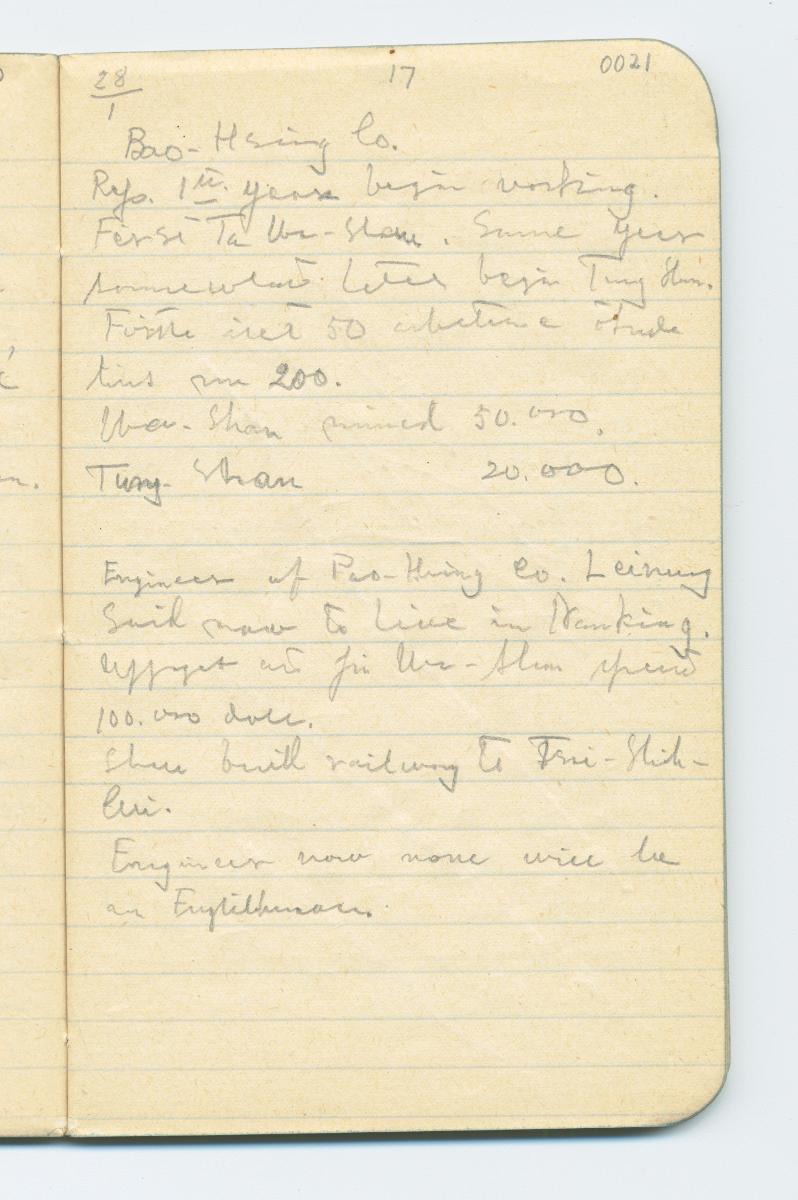 28/1 17 0021
Bao-Hsing Co.
Rep. 1st year begin working.
First Ta Wa-Shan. Same year
somewhat later begin Tung Shan.
Första året 50 arbetare
tius nu 200.
Wa-Shan mined 50.000.
Tung-Shan 20.000.
Engineer of Pao-Hsing Co.
Said now to live in Nanking.
Uppget att för Wa-Shan spend
100.000 doll.
Shall built railway to Tsai-Shih-
Chi.
Engineer now none will be
an Englishman.